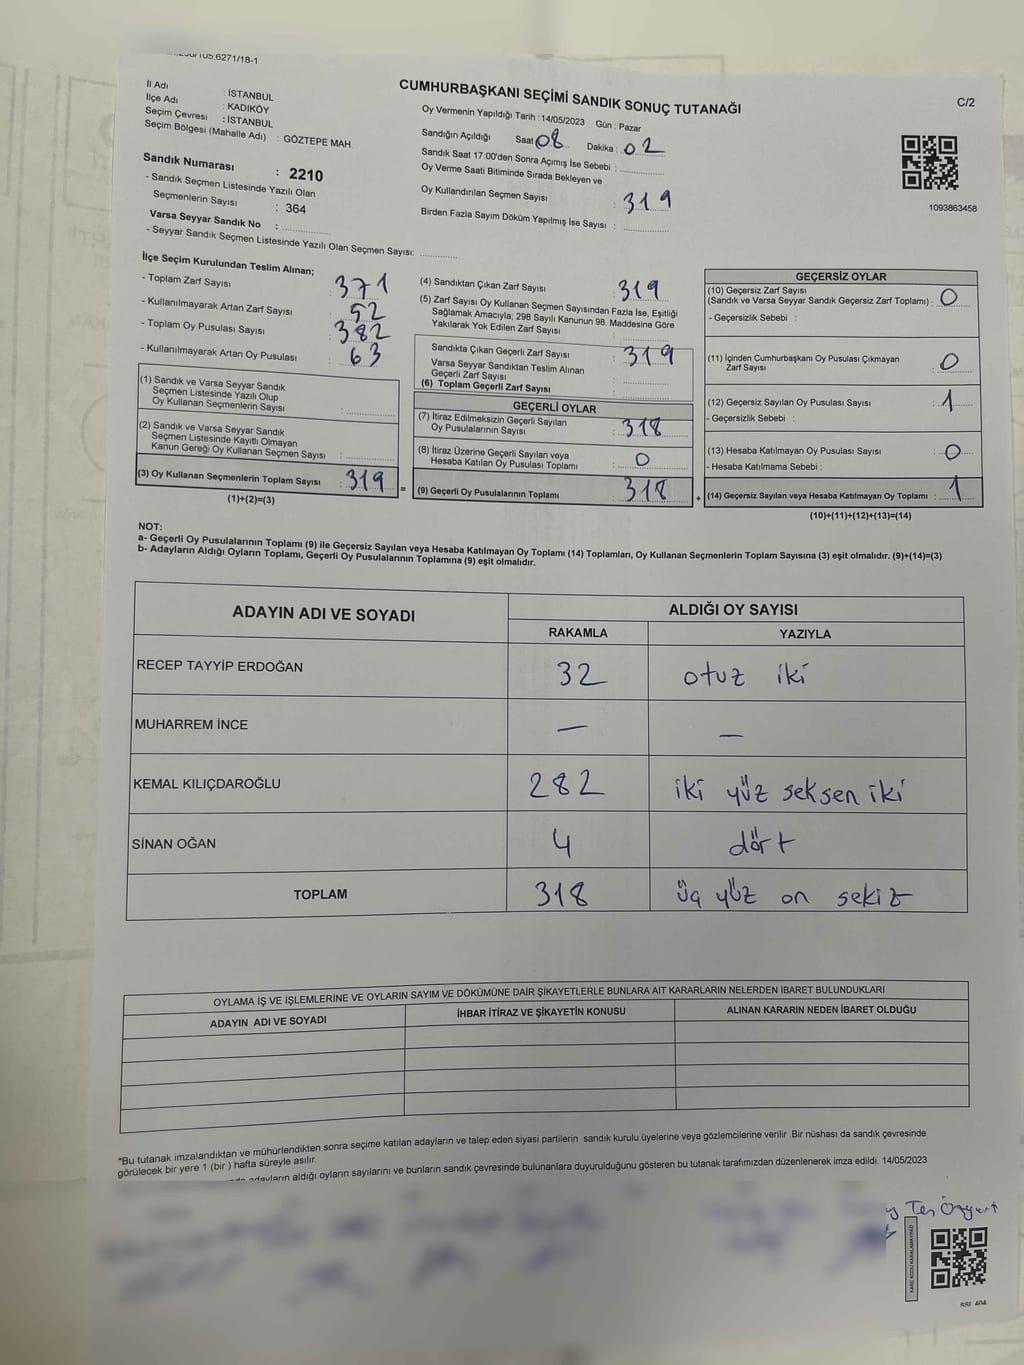 6271/18-1
İl Adı : İSTANBUL
İlçe Adı : KADIKÖY
Seçim Çevresi : İSTANBUL
Seçim Bölgesi (Mahalle Adı) : GÖZTEPE MAH.
Sandık Numarası : 2210
- Sandık Seçmen Listesinde Yazılı Olan
Seçmenlerin Sayısı : 364
Varsa Seyyar Sandık No :
- Seyyar Sandık Seçmen Listesinde Yazılı Olan Seçmen Sayısı:
CUMHURBAŞKANI SEÇİMİ SANDIK SONUÇ TUTANAĞI
C/2
Oy Vermenin Yapıldığı Tarih :14/05/2023 Gün : Pazar
Sandığın Açıldığı Saat 08 Dakika : 02
Sandık Saat 17:00'den Sonra Açımış İse Sebebi :
Oy Verme Saati Bitiminde Sırada Bekleyen ve
Oy Kullandırılan Seçmen Sayısı : 319
Birden Fazla Sayım Döküm Yapılmış İse Sayısı :
1093863458
İlçe Seçim Kurulundan Teslim Alınan;
- Toplam Zarf Sayısı : 371
- Kullanılmayarak Artan Zarf Sayısı : 52
- Toplam Oy Pusulası Sayısı : 382
- Kullanılmayarak Artan Oy Pusulası : 63
(1) Sandık ve Varsa Seyyar Sandık
Seçmen Listesinde Yazılı Olup
Oy Kullanan Seçmenlerin Sayısı :
(2) Sandık ve Varsa Seyyar Sandık
Seçmen Listesinde Kayıtlı Olmayan
Kanun Gereği Oy Kullanan Seçmen Sayısı :
(3) Oy Kullanan Seçmenlerin Toplam Sayısı : 319 =
(1)+(2)=(3)
(4) Sandıktan Çıkan Zarf Sayısı : 319
(5) Zarf Sayısı Oy Kullanan Seçmen Sayısından Fazla İse, Eşitliği
Sağlamak Amacıyla; 298 Sayılı Kanunun 98. Maddesine Göre
Yakılarak Yok Edilen Zarf Sayısı :
Sandıkta Çıkan Geçerli Zarf Sayısı : 319
Varsa Seyyar Sandıktan Teslim Alınan
Geçerli Zarf Sayısı :
(6) Toplam Geçerli Zarf Sayısı :
GEÇERLİ OYLAR
(7) İtiraz Edilmeksizin Geçerli Sayılan
Oy Pusulalarının Sayısı : 318
(8) İtiraz Üzerine Geçerli Sayılan veya
Hesaba Katılan Oy Pusulası Toplamı : 0
(9) Geçerli Oy Pusulalarının Toplamı : 318 +
GEÇERSİZ OYLAR
(10) Geçersiz Zarf Sayısı
(Sandık ve Varsa Seyyar Sandık Geçersiz Zarf Toplamı) : 0
- Geçersizlik Sebebi :
(11) İçinden Cumhurbaşkanı Oy Pusulası Çıkmayan
Zarf Sayısı : 0
(12) Geçersiz Sayılan Oy Pusulası Sayısı : 1
- Geçersizlik Sebebi :
(13) Hesaba Katılmayan Oy Pusulası Sayısı : 0
- Hesaba Katılmama Sebebi :
(14) Geçersiz Sayılan veya Hesaba Katılmayan Oy Toplamı : 1
(10)+(11)+(12)+(13)=(14)
NOT:
a- Geçerli Oy Pusulalarının Toplamı (9) ile Geçersiz Sayılan veya Hesaba Katılmayan Oy Toplamı (14) Toplamları, Oy Kullanan Seçmenlerin Toplam Sayısına (3) eşit olmalıdır. (9)+(14)=(3)
b- Adayların Aldığı Oyların Toplamı, Geçerli Oy Pusulalarının Toplamına (9) eşit olmalıdır.
ADAYIN ADI VE SOYADI ALDIĞI OY SAYISI
RAKAMLA YAZIYLA
RECEP TAYYİP ERDOĞAN 32 otuz iki
MUHARREM İNCE — —
KEMAL KILIÇDAROĞLU 282 iki yüz seksen iki
SİNAN OĞAN 4 dört
TOPLAM 318 üç yüz on sekiz
OYLAMA İŞ VE İŞLEMLERİNE VE OYLARIN SAYIM VE DÖKÜMÜNE DAİR ŞİKAYETLERLE BUNLARA AİT KARARLARIN NELERDEN İBARET BULUNDUKLARI
ADAYIN ADI VE SOYADI İHBAR İTİRAZ VE ŞİKAYETİN KONUSU ALINAN KARARIN NEDEN İBARET OLDUĞU
*Bu tutanak imzalandıktan ve mühürlendikten sonra seçime katılan adayların ve talep eden siyasi partilerin sandık kurulu üyelerine veya gözlemcilerine verilir .Bir nüshası da sandık çevresinde
görülecek bir yere 1 (bir ) hafta süreyle asılır.
adayların aldığı oyların sayılarını ve bunların sandık çevresinde bulunanlara duyurulduğunu gösteren bu tutanak tarafımızdan düzenlenerek imza edildi. 14/05/2023